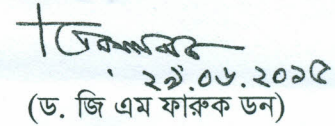 ২৯.০৬.২০১৫
(ড. জি এম ফারুক ডন)